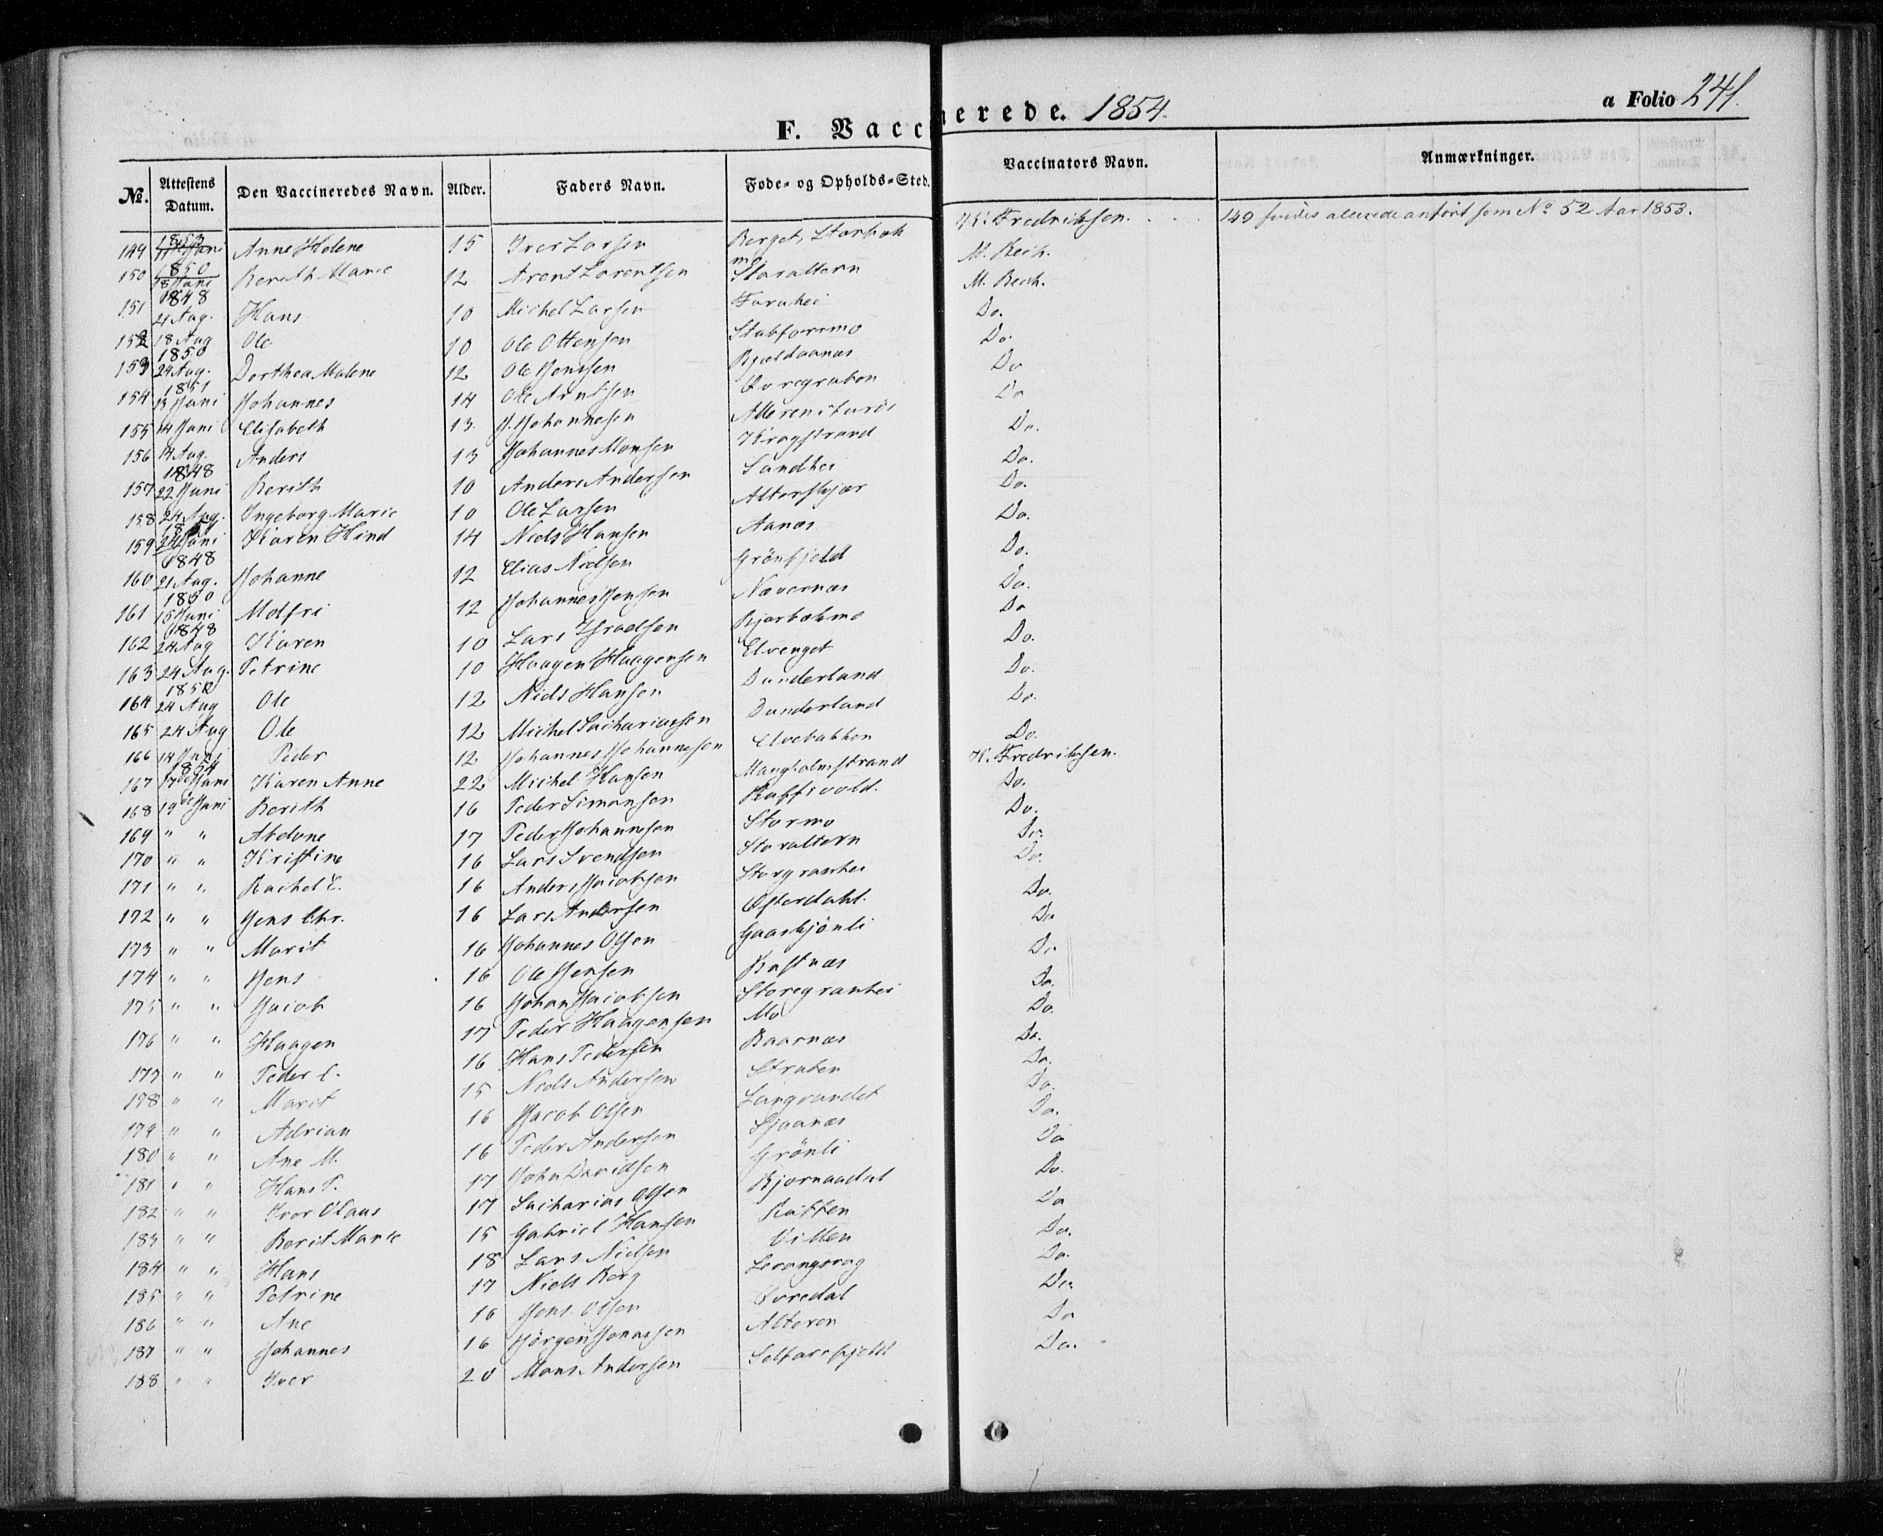 F. Vaccinerede. 1854.
a Folio 241.
No. | Attestens Datum. | Den Vaccineredes Navn. | Alder. | Faders Navn. | Føde- og Opholds-Sted. | Vaccinators Navn. | Anmærkninger.
149 | 1853 Juni | Anne Helene | 15 | Iver Larsen | Berget, | K. Fredriksen. | 149 findes allerede anført som No 52 Aar 1853.
150 | 1850 18 Juni | Berith Marie | 12 | Arent Lorentsen | Storalteren | M. Beck.
151 | 1848 21 Aug. | Hans | 10 | Michel Larsen | Furuhei | M. Beck.
152 | 18 Aug | Ole | 10 | Ole Ottensen | Stabforsmo | Do.
153 | 1850 24 Aug. | Dorthea Malene | 12 | Ole Jonssen | | Do.
154 | 1851 13 Juni | Johannes | 14 | Ole Arntsen | | Do
155 | 14 Juni | Elisabeth | 13 | J. Johannesen | | Do
156 | 14 Aug. | Anders | 13 | Johannes Monsen | Krogstrand | Do.
157 | 1848 22 Juni | Berith | 10 | Anders Andersen | Sandhei | Do.
158 | 24 Aug. | Ingeborg Marie | 10 | Ole Larsen | Alterskjær | Do.
159 | 24 Juni | Karen Hind | 14 | Niels Hansen | Aanæs | Do.
160 | 1848 21 Aug. | Johanne | 12 | Elias Nielsen | Grönfjeld | Do.
161 | 1850 15 Juni | Malfri | 12 | Johannes Jensen | Nævernæs | Do.
162 | 1848 24 Aug | Karen | 10 | Lars Israelsen | Bjørbekmo | Do
163 | 24 Aug. | Petrine | 10 | Haagen Haagensen | Elvenget | Do.
164 | 1850 24 Aug | Ole | 12 | Niels Hansen | Dunderland | Do.
165 | 24 Aug | Ole | 12 | Michel Sachariassen | Dunderland | Do.
166 | 14 Juni | Peder | 12 | Johannes Johannesen | Elvebakken | Do.
167 | 1854 17de Juni | Karen Anne | 22 | Michel Hansen | Mangholmstrand | K. Fredriksen.
168 | 19de Juni | Berith | 16 | Peder Simonsen | | Do.
169 | " " | Abelone | 17 | Peder Johannesen | Stormo | Do.
170 | " " | Kristine | 16 | Lars Svendsen | Storalteren | Do.
171 | " " | Rachel E. | 16 | Anders Jacobsen | Storgranhei | Do.
172 | " " | Jens Chr. | 16 | Lars Andersen | Østerdahl. | Do.
173 | " " | Marit | 16 | Johannes Olsen | Gaaskjönli | Do
174 | " " | Jens | 16 | Ole Jensen | Bustnæs | Do
175 | " " | Jacob | 16 | Johan Jacobsen | Storegranhei | Do.
176 | " " | Haagen | 17 | Peder Haagensen | Mo | Do.
177 | " " | Peder C. | 16 | Hans Pedersen | Baarnæs | Do.
178 | " " | Marit | 15 | Niels Andersen | Straten | Do.
179 | " " | Adrian | 16 | Jacob Olsen | Langvandet | Do.
180 | " " | Ane M. | 16 | Peder Andersen | Sjaanæs | Do.
181 | " " | Hans P. | 17 | John Davidsen | Grönli | Do
182 | " " | Iver Olaus | 17 | Sacharias Olsen | Bjørnaadal | Do.
183 | " " | Berit Marie | 15 | Gabriel Hansen | | Do
184 | " " | Hans | 18 | Lars Nielsen | | Do.
185 | " " | Petrine | 17 | Niels Berg | | Do.
186 | " " | Ane | 16 | Jens Olsen | | Do.
187 | " " | Johannes | 16 | Jörgen Jonassen | Alteren | Do
188 | " " | Iver | 20 | Mons Andersen | | Do.